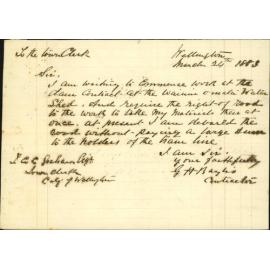 To the Town Clerk
Wellington
March 24th 1883
Sir.
I am waiting to Commence work at the
Dam Contract at the Wainui o mata Water
Shed. And require the right of road
to the work to take my Material there at
once. At present I am debar'd the
road without paying a large sum
to the holders of the tram line.
I am Sir.
your faithfully
G H Baylis
Contractor
Town Clerk
City of Wellington